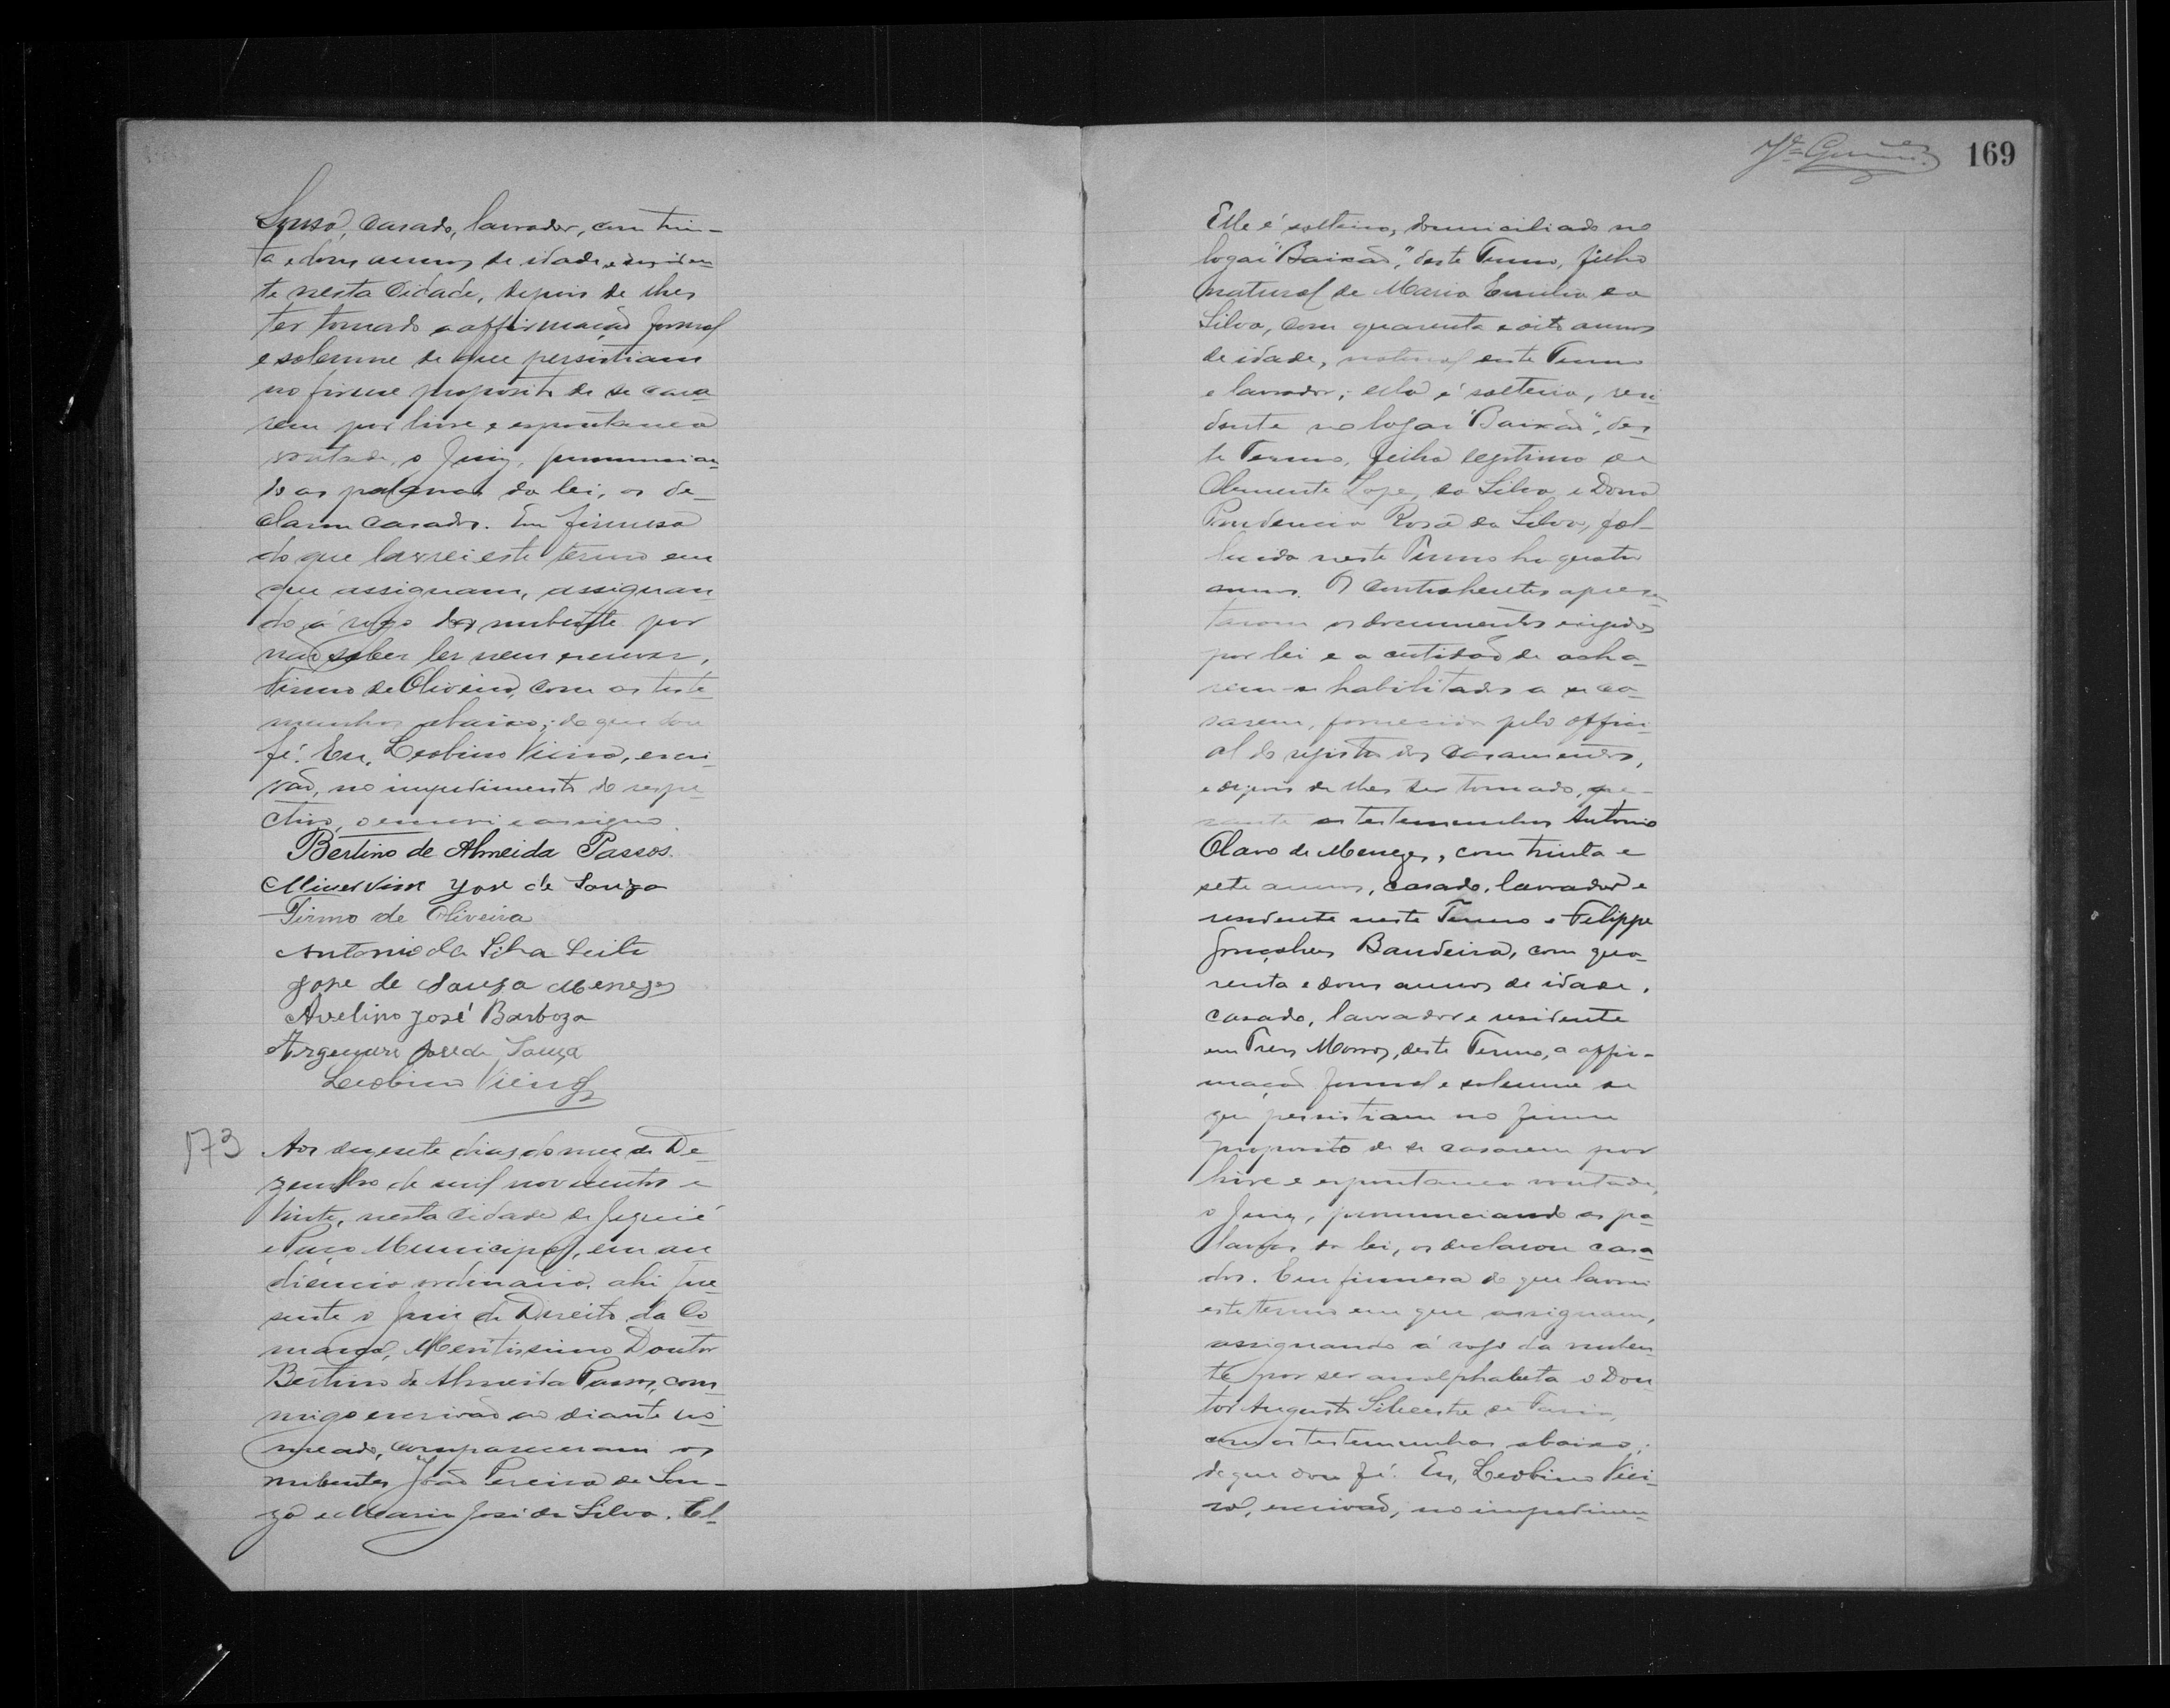 Sousa, casado, lavrador, com trin-
ta e dous annos de idade, e residen-
te nesta Cidade, depois de lhes
ter tomado a affirmação formal
e solemne de que persistiam
no firme proposito de se casa-
rem por livre e espontanea
vontade, o Juiz, pronuncian-
do as palavras da lei, os de-
clarou casados. Em firmesa
do que lavrei este termo em
que assignam, assignan-
do á rogo da nubente por
não saber ler nem escrever,
Firmo de Oliveira, com as teste-
munhas abaixo; do que dou
fé. Eu, Leobino Vieira, escri-
vão, no impedimento do respe-
ctivo, o escrevi e assigno.
Bertino de Almeida Passos.
Minervino Jose de Souza
Firmo de Oliveira
Antonio da Silva Leite
Jose de Souza Menezes
Avelino José Barboza
José de Souza
Leobino Vieira
173
Aos dezesete dias do mez de De-
zembro de mil novecentos e
vinte, nesta Cidade de Jequié
e Paço Municipal, em au-
diencia ordinaria, ahi pre-
sente o Juiz de Direito da Co-
marca, Meritissimo Doutor
Bertino de Almeida Passos, com-
migo escrivão ao diante no-
meado, compareceram os
nubentes João Pereira de Sou-
za e Maria José da Silva. El-
169
Elle é solteiro, domiciliado no
logar "Baixão", deste Termo, filho
natural de Maria Emilia da
Silva, com quarenta e oito annos
de idade, natural deste Termo
e lavrador; ella é solteira, resi-
dente no logar "Baixão", des-
te Termo, filha legitima de
Clemente Lopes da Silva e Dona
Prudencia Rosa da Silva, fal-
lecida neste Termo ha quatro
annos. Os contrahentes apresen-
taram os documentos exigidos
por lei e a certidão de acha-
rem-se habilitados a se ca-
sarem, fornecida pelo offici-
al do registro dos casamentos,
e depois de lhes ter tomado, pe-
rante as testemunhas Antonio
Olavo de Menezes, com trinta e
sete annos, casado, lavrador e
residente neste Termo e Felippe
Gonçalves Bandeira, com qua-
renta e dous annos de idade,
casado, lavrador e residente
em Tres Morros, deste Termo, a affir-
mação formal e solemne de
que persistiam no firme
proposito de se casarem por
livre e espontanea vontade,
o Juiz, pronunciando as pa-
lavras da lei, os declarou casa-
dos. Em firmesa do que lavrei
este termo em que assignam,
assignando á rogo da nuben-
te por ser analphabeta o Dou-
tor Augusto Silvestre de Faria,
com as testemunhas abaixo;
do que dou fé. Eu, Leobino Viei-
ra, escrivão, no impedimen-